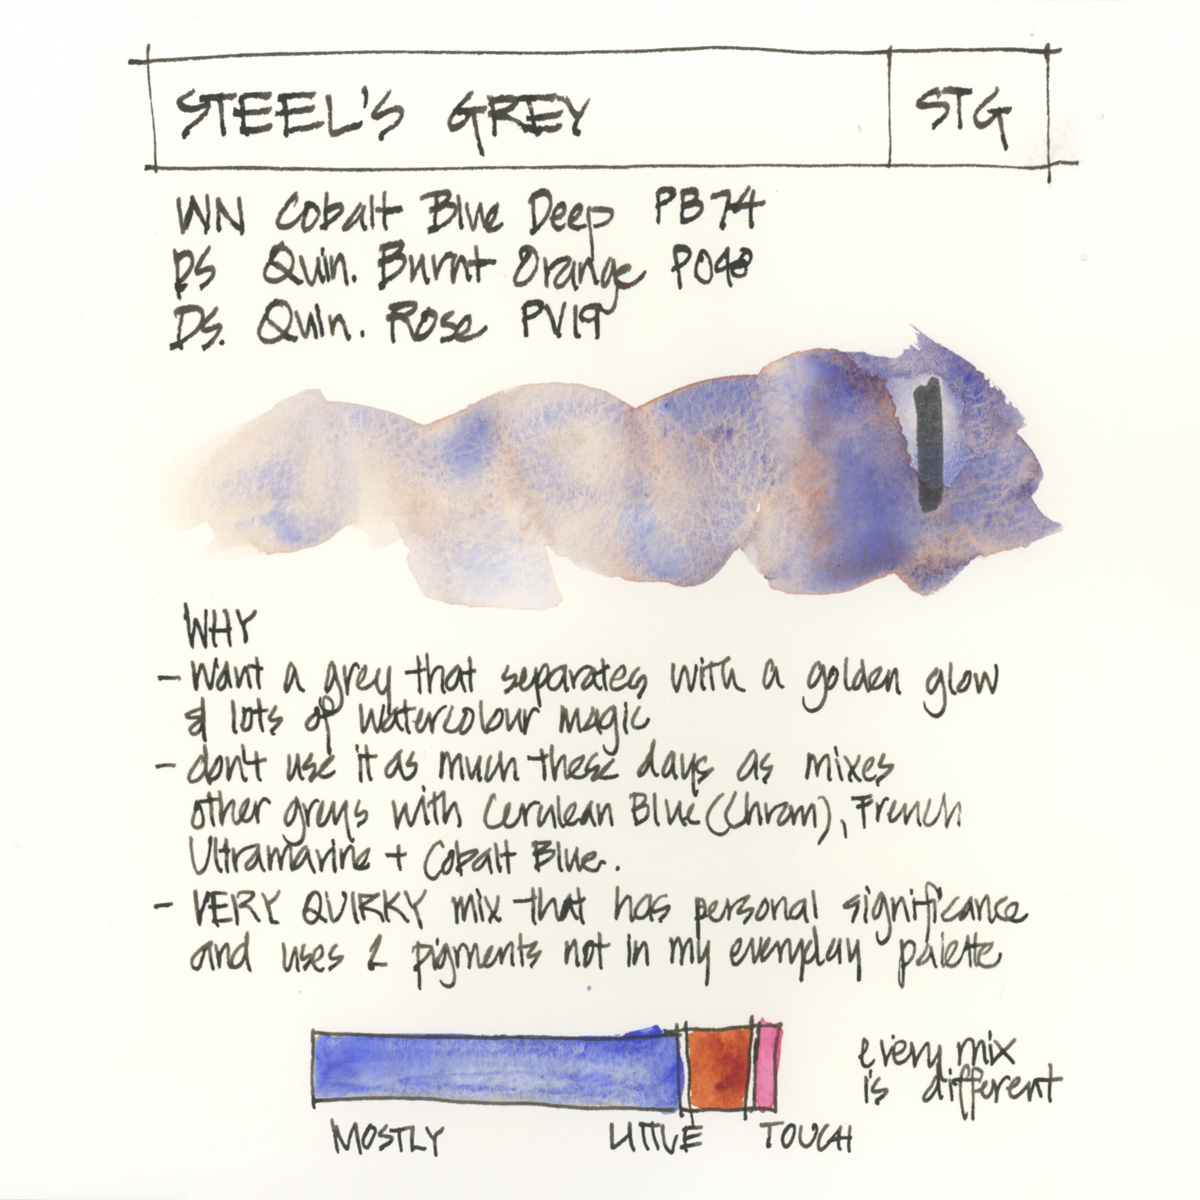 STEEL'S GREY STG
WN Cobalt Blue Deep PB74
DS Quin. Burnt Orange PO48
DS. Quin. Rose PV19
WHY
- Want a grey that separates with a golden glow
& lots of watercolour magic
- don't use it as much these days as mixes
other greys with Cerulean Blue (Chrom), French
Ultramarine + Cobalt Blue.
- VERY QUIRKY mix that has personal significance
and uses 2 pigments not in my everyday palette
every mix
is different
MOSTLY LITTLE TOUCH